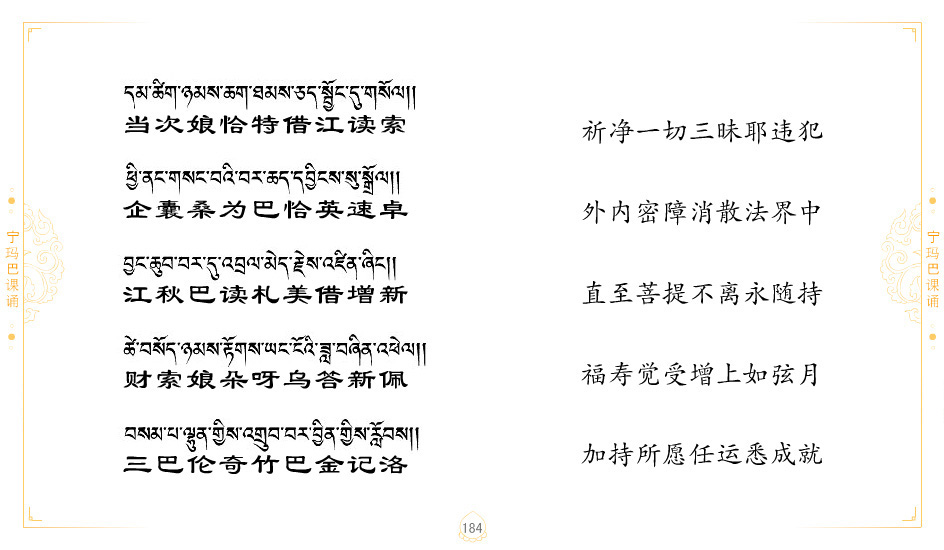 དམ་ཚིག་ཉམས་ཆག་ཐམས་ཅད་སྦྱོང་དུ་གསོལ།།
当次娘恰特借江读索
祈净一切三昧耶违犯
ཕྱི་ནང་གསང་བའི་བར་ཆད་དབྱིངས་སུ་སྒྲོལ།།
企囊桑为巴恰英速卓
外内密障消散法界中
བྱང་ཆུབ་བར་དུ་འབྲལ་མེད་རྗེས་འཛིན་ཞིང།།
江秋巴读札美借增新
直至菩提不离永随持
ཚེ་བསོད་ཉམས་རྟོགས་ཡང་ངོའི་ཟླ་བཞིན་འཕེལ།།
财索娘朵呀乌答新佩
福寿觉受增上如弦月
བསམ་པ་ལྷུན་གྱིས་འགྲུབ་བར་བྱིན་གྱིས་རློབས།།
三巴伦奇竹巴金记洛
加持所愿任运悉成就
宁玛巴课诵
宁玛巴课诵
184